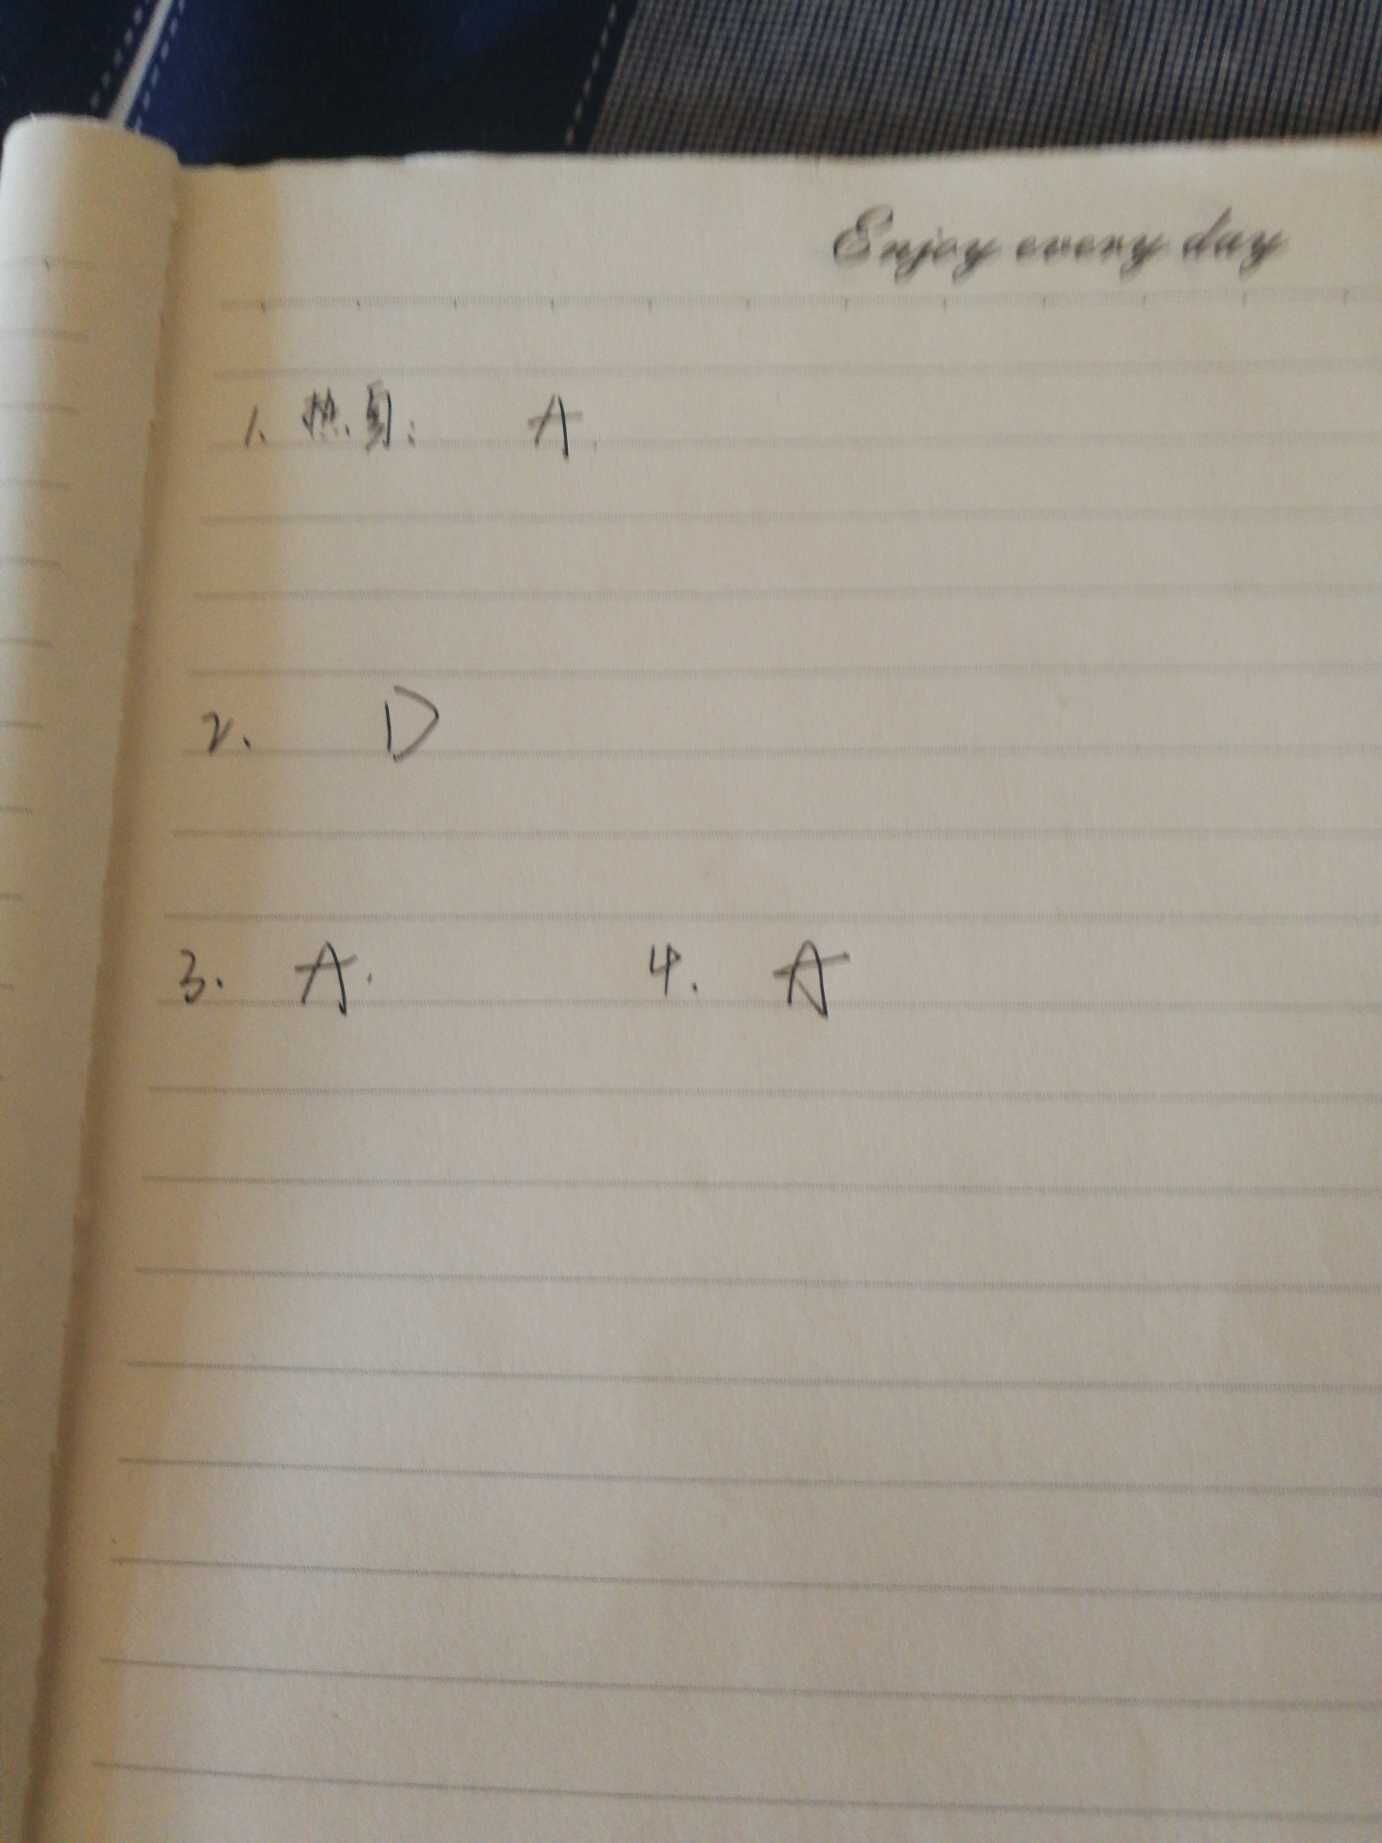 Enjoy every day
1. 热身: A.
2. D
3. A. 4. A